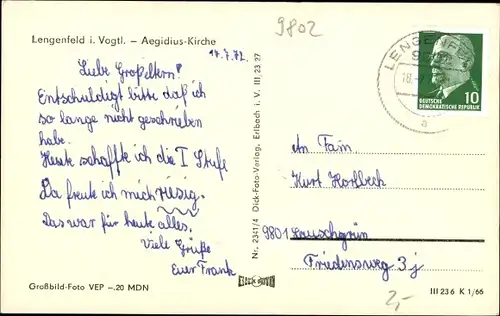 9802
Lengenfeld i. Vogtl. – Aegidius-Kirche
17.7.72.
Liebe Großeltern!
Entschuldigt bitte daß ich
so lange nicht geschrieben
habe.
Heute schaffte ich die I Stufe
Da freute ich mich riesig.
Das war für heute alles.
Viele Grüße
Euer Frank
Großbild-Foto VEP –.20 MDN
Nr. 2341/4 Dick-Foto-Verlag, Erlbach i. V. III 23 27
LENGENFE
18.
a
10
DEUTSCHE
DEMOKRATISCHE REPUBLIK
An Fam
Kurt Horlbeck
9801 Lauschgrün
Friedensweg 3j
2,-
III 23 6 K 1/66